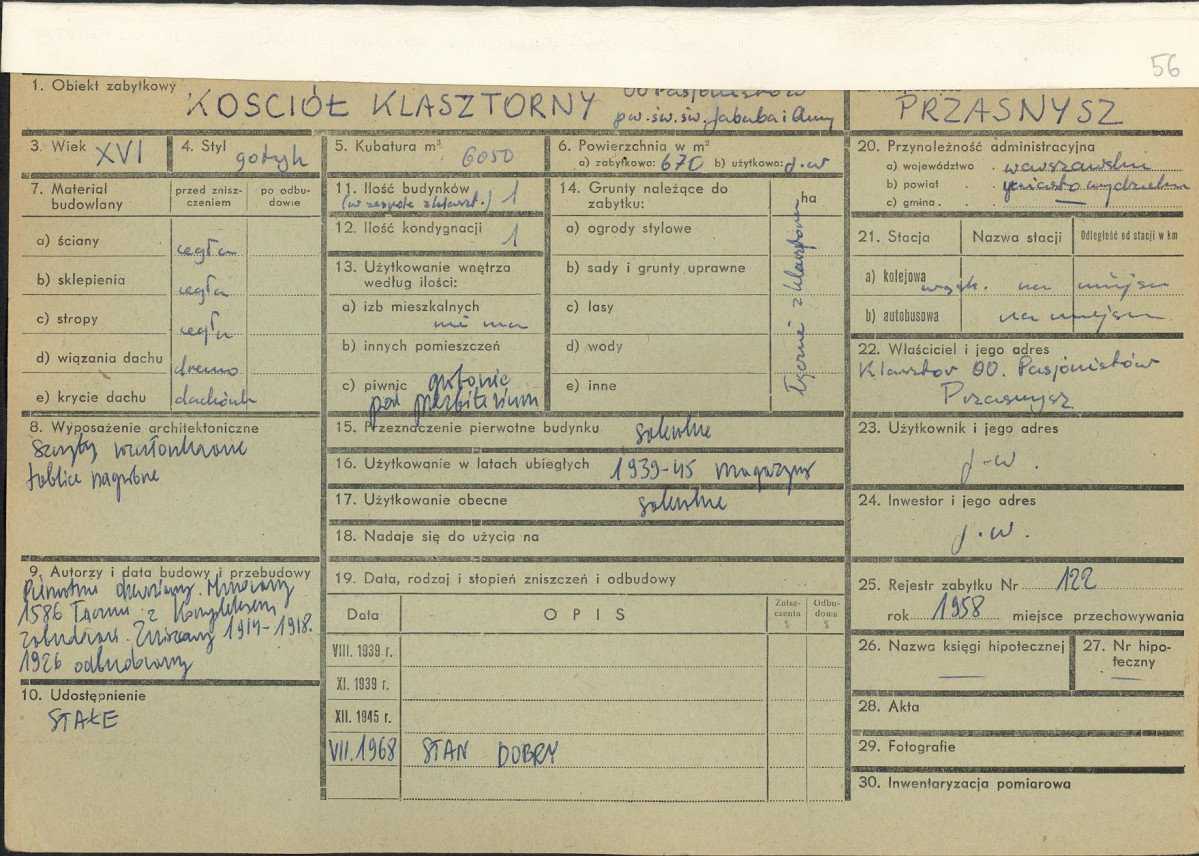 56
1. Obiekt zabytkowy KOSCIÓŁ KLASZTORNY OO Pasjonistów
pw. św. św. Jakuba i Anny
PRZASNYSZ
3. Wiek XVI
4. Styl gotyk
5. Kubatura m³ 6050
6. Powierzchnia w m²
a) zabytkowa: 670 b) użytkowo: j.w
7. Materiał budowlany
przed zniszczeniem
po odbudowie
a) ściany cegła
b) sklepienia cegła
c) stropy cegła
d) wiązania dachu drewno
e) krycie dachu dachówk
8. Wyposażenie architektoniczne
szczyty
tablice nagrobne
9. Autorzy i data budowy i przebudowy
Pierwotnie drewniany. Murowany
1586 Łącznie z kompleksem
zabudowań. Zniszczony 1914-1918.
1926 odbudowany
10. Udostępnienie
STAŁE
11. Ilość budynków
(w zespole klaszt.) 1
12. Ilość kondygnacji 1
13. Użytkowanie wnętrza
według ilości:
a) izb mieszkalnych
nie ma
b) innych pomieszczeń
c) piwnic grobowiec
pod prezbiterium
14. Grunty należące do
zabytku:
ha
a) ogrody stylowe
b) sady i grunty uprawne
c) lasy
d) wody
e) inne
Łącznie z klasztorem
15. Przeznaczenie pierwotne budynku sakralne
16. Użytkowanie w latach ubiegłych 1939-45 magazyn
17. Użytkowanie obecne sakralne
18. Nadaje się do użycia na
19. Data, rodzaj i stopień zniszczeń i odbudowy
Data
OPIS
Zniszczenia %
Odbudowa %
VIII. 1939 r.
XI. 1939 r.
XII. 1945 r.
VII. 1968 STAN DOBRY
20. Przynależność administracyjna
a) województwo . warszawskie
b) powiat . miasto wydzielone
c) gmina . —
21. Stacja
Nazwa stacji
Odległość od stacji w km
a) kolejowa wąsk. na miejscu
b) autobusowa na miejscu
22. Właściciel i jego adres
Klasztor OO. Pasjonistów
Przasnysz
23. Użytkownik i jego adres
j-w.
24. Inwestor i jego adres
j.w.
25. Rejestr zabytku Nr 122
rok 1958 miejsce przechowywania
26. Nazwa księgi hipotecznej
—
27. Nr hipoteczny
—
28. Akta
29. Fotografie
30. Inwentaryzacja pomiarowa